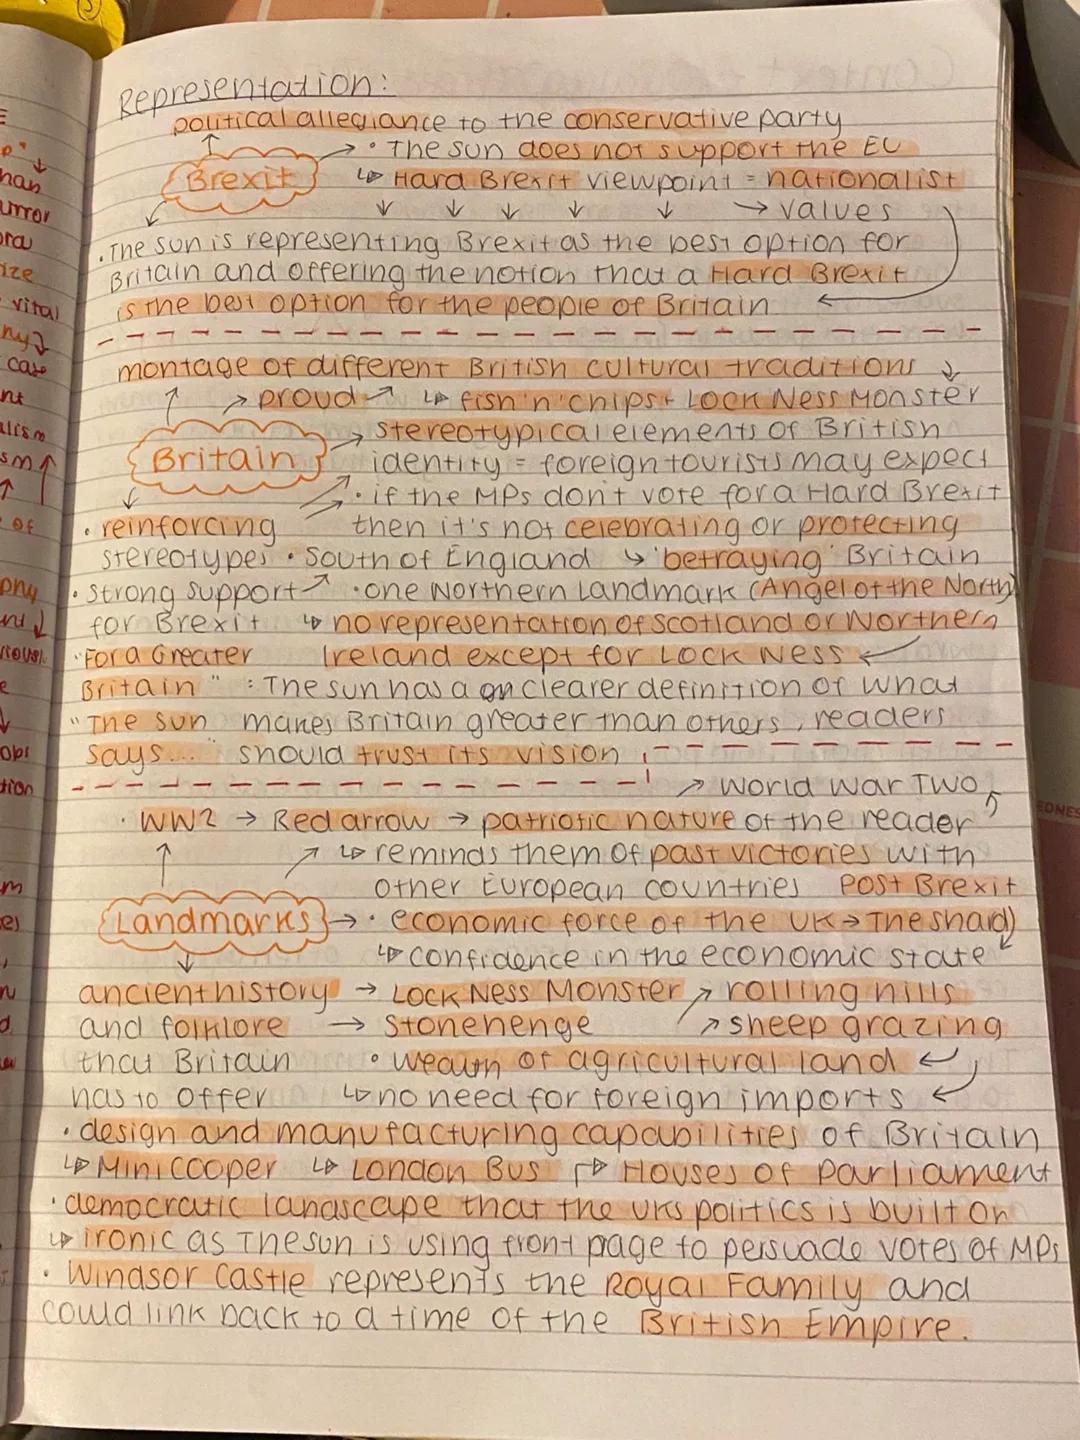 Representation:
political allegiance to the conservative party
• The Sun does not support the EU
Brexit
↳ Hard Brexit viewpoint = nationalist
→ values
• The Sun is representing Brexit as the best option for
Britain and offering the notion that a Hard Brexit
is the best option for the people of Britain
montage of different British cultural traditions
→ proud ↳ fish 'n' chips + Lock Ness Monster
→ stereotypical elements of British
Britain
identity = foreign tourists may expect
• if the MPs don't vote for a Hard Brexit
• reinforcing then it's not celebrating or protecting
stereotypes • South of England ↳ 'betraying' Britain
• strong support • one Northern Landmark (Angel of the North)
for Brexit ↳ no representation of Scotland or Northern
"For a Greater Ireland except for Lock Ness
Britain" : The sun has a on clearer definition of what
"The Sun makes Britain greater than others, readers
says...." should trust its vision
→ World War Two
• WW2 → Red arrow → patriotic nature of the reader
↳ reminds them of past victories with
other European countries Post Brexit
Landmarks → • economic force of the UK → The shard
↳ confidence in the economic state
ancient history → Lock Ness Monster → rolling hills
and folklore → Stonehenge → sheep grazing
that Britain • wealth of agricultural land
has to offer ↳ no need for foreign imports
• design and manufacturing capabilities of Britain
↳ Mini Ccooper ↳ London Bus ↱ Houses of Parliament
• democratic landscape that the UKs politics is built on
↳ ironic as The sun is using front page to persuade votes of MPs
• Windsor Castle represents the Royal Family and
could link back to a time of the British Empire.